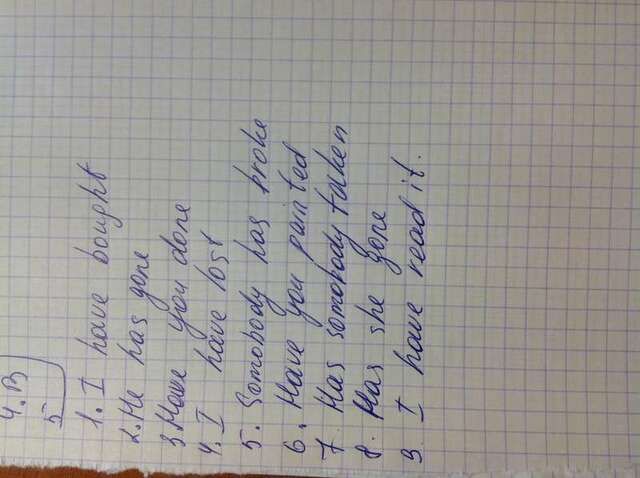 4. B
5
1. I have bought
2. He has gone
3. Have you done
4. I have lost
5. Somobody has broke
6. Have you painted
7. Has somobody taken
8. Has she gone
9. I have read it.